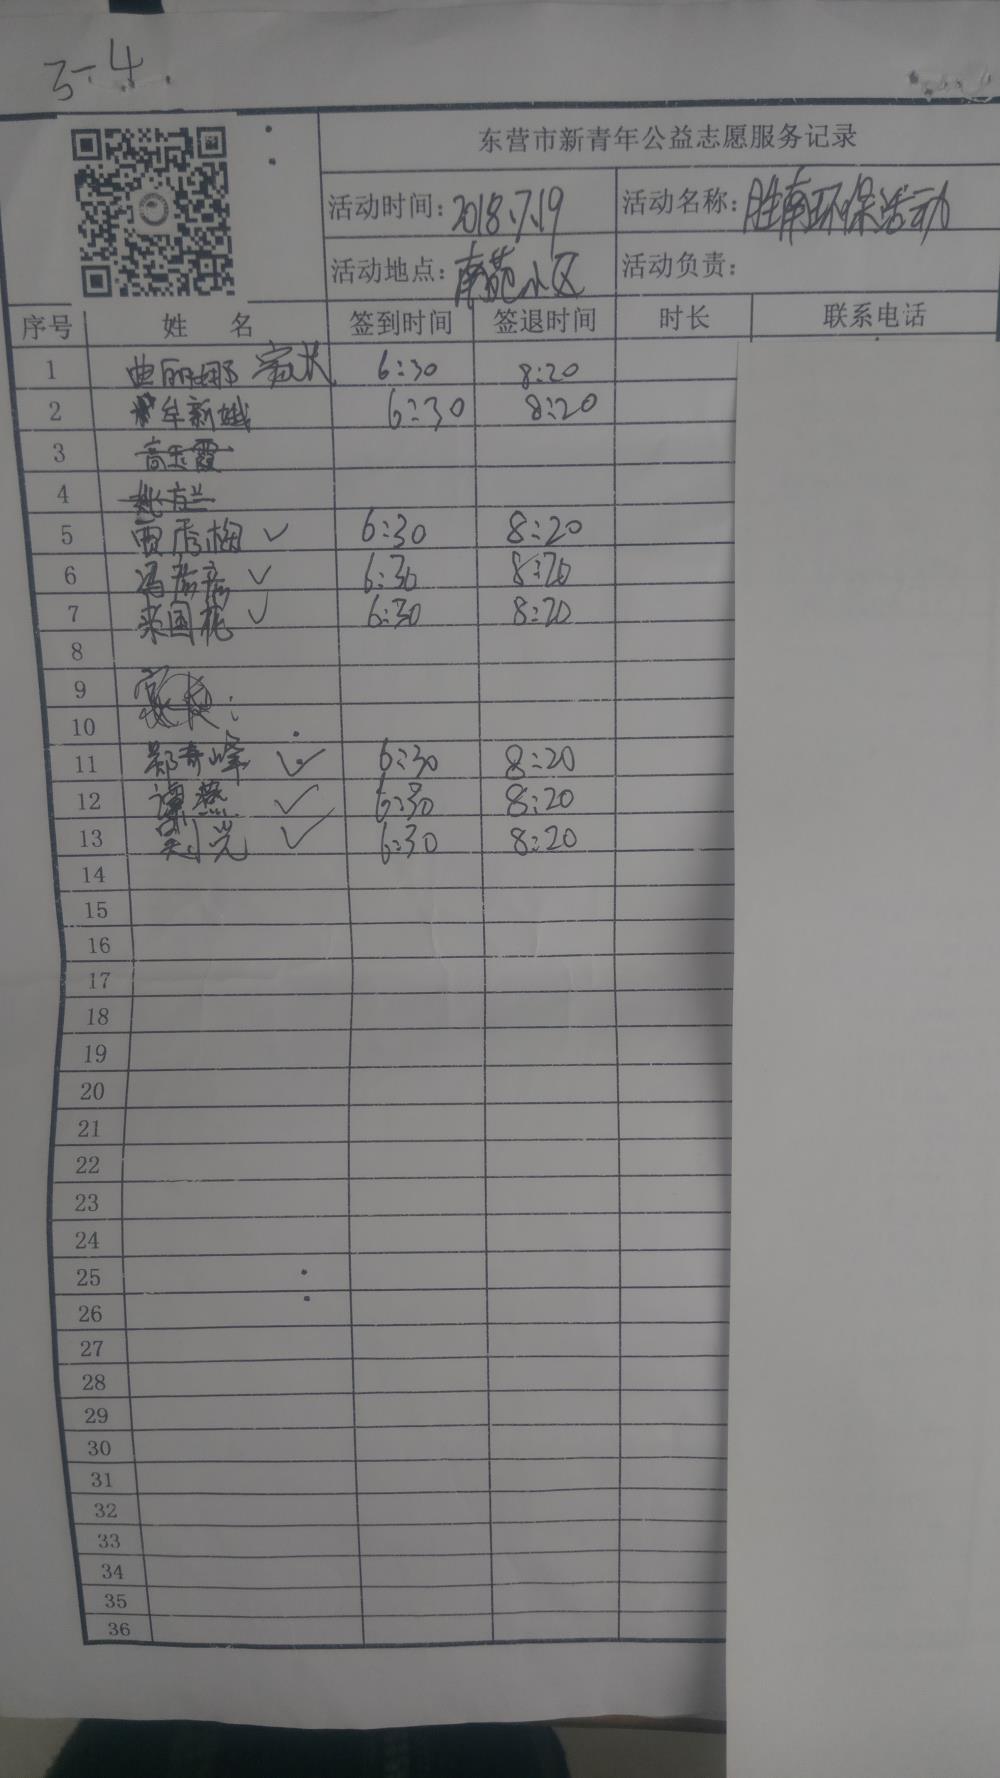 3-4.
东营市新青年公益志愿服务记录
活动时间：2018.7.19 活动名称：胜南环保活动
活动地点：南苑小区 活动负责：
序号 姓 名 签到时间 签退时间 时长 联系电话
1 曲丽娜 家长 6:30 8:20
2 牟新娥 6:30 8:20
3 高玉霞
4
5 贾秀梅 ✓ 6:30 8:20
6 冯彦彦 ✓ 6:30 8:20
7 国花 ✓ 6:30 8:20
8
9
10
11 郑奇峰 ✓ 6:30 8:20
12 谭燕 ✓ 6:30 8:20
13 ✓ 6:30 8:20
14
15
16
17
18
19
20
21
22
23
24
25
26
27
28
29
30
31
32
33
34
35
36